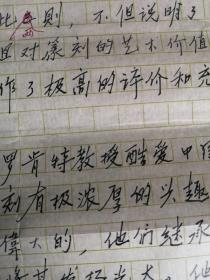 比 则，不但说明了
且对篆刻的艺术价值
作了极高的评价和充
罗肯特教授酷爱中国
刻有极浓厚的兴趣
偉大的，他们继承